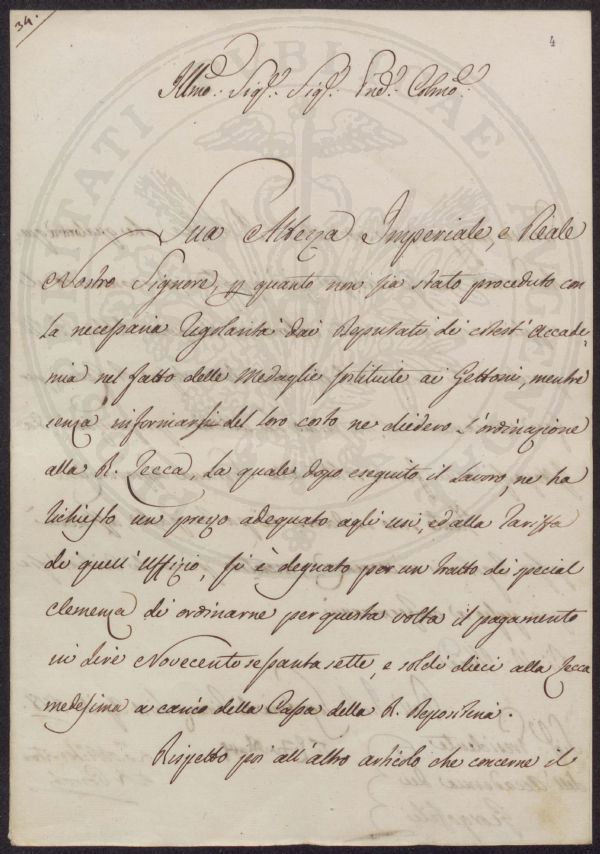 34.
4
Illmo: Sigr: Sigr: Pnd: Colmo:
Sua Altezza Imperiale, e Reale
Nostro Signore, p quanto non sia stato proceduto con
la necessaria regolarità dai Deputati di cotest' Accade-
mia nel fatto delle Medaglie sostituite ai Gettoni, mentre
senza informarsi del loro costo ne diedero l'ordinazione
alla R. Zecca, la quale dopo eseguito il lavoro, ne ha
richiesto un prezzo adequato agli usi, ed alla Tariffa
di quell' Uffizio, si è degnato per un tratto di special
clemenza di ordinarne per questa volta il pagamento
in Lire Novecento sessanta sette, e soldi dieci alla Zecca
medesima a carico della Cassa della R. Depositeria.
Rispetto poi all' altro articolo che concerne il